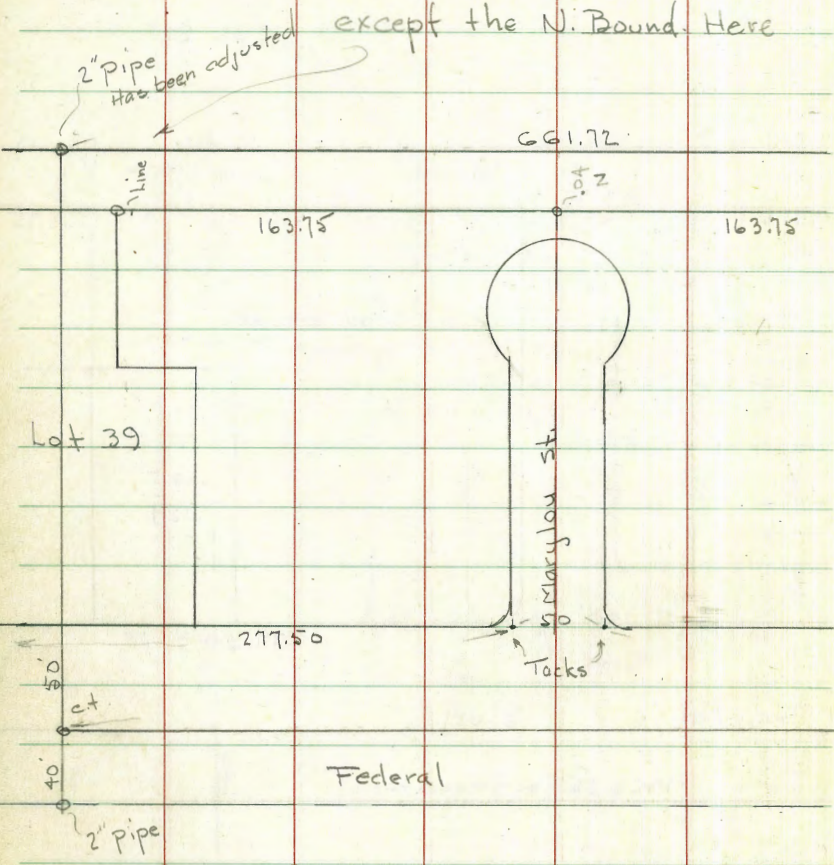 except the N. Bound. Here
2" pipe
Has been adjusted
661.72
Line
.04 N
163.75
163.75
Lot 39
Marylou St.
50
277.50
Tacks
50'
c.t
40'
Federal
2" pipe